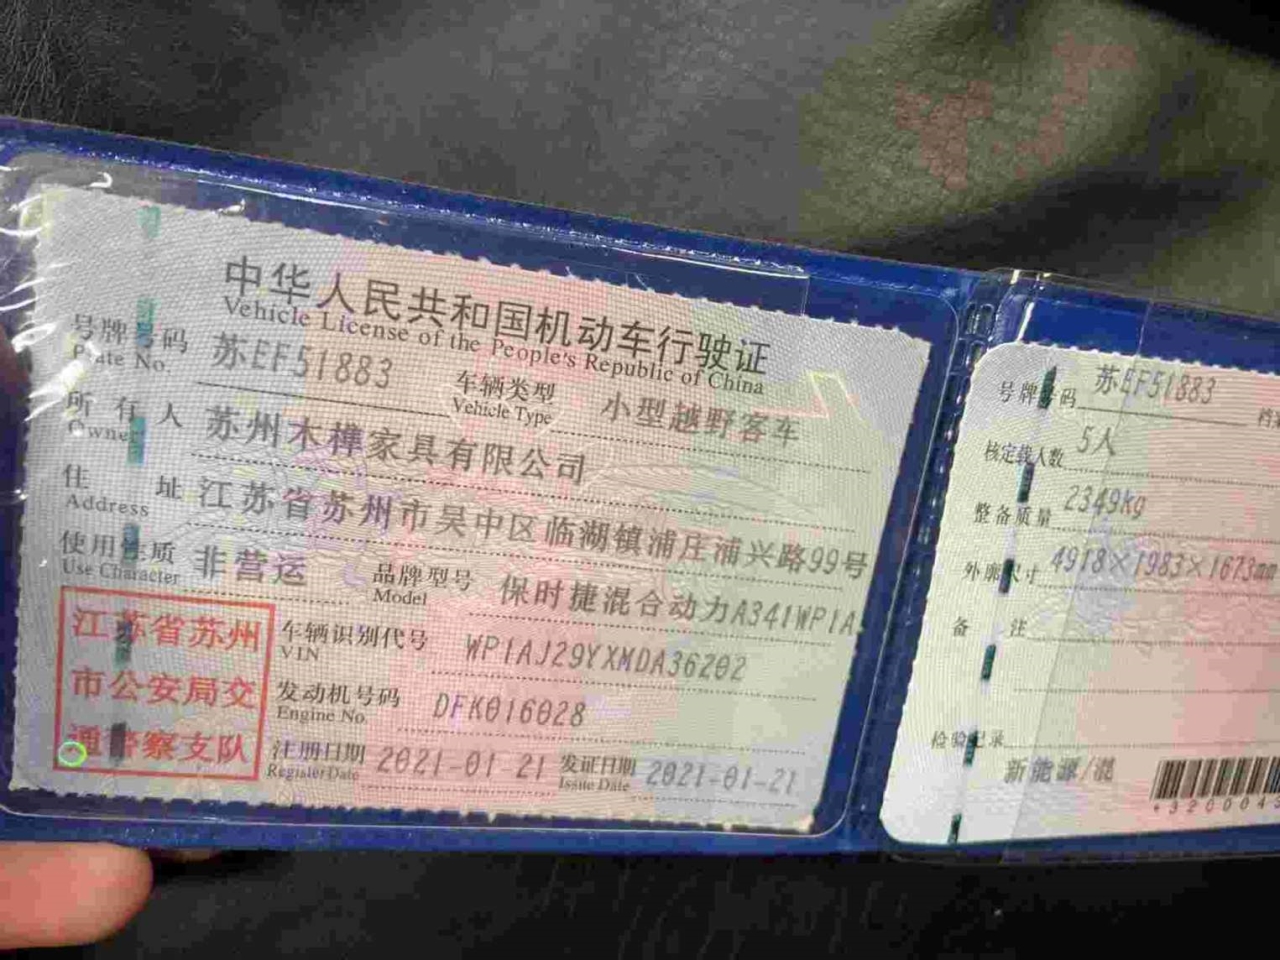 中华人民共和国机动车行驶证
Vehicle License of the People's Republic of China
号牌号码 苏EF51883 车辆类型 小型越野客车
Plate No. Vehicle Type
所有人 苏州木榫家具有限公司
Owner
住址 江苏省苏州市吴中区临湖镇浦庄浦兴路99号
Address
使用性质 非营运 品牌型号 保时捷混合动力A341WP1A
Use Character Model
江苏省苏州
市公安局交
通警察支队
车辆识别代号 WP1AJ29YXMDA36202
VIN
发动机号码 DFK016028
Engine No.
注册日期 2021-01-21 发证日期 2021-01-21
Register Date Issue Date
号牌号码 苏EF51883
核定载人数 5人
整备质量 2349kg
外廓尺寸 4918×1983×1673mm
备注
检验记录
新能源/混
*320004